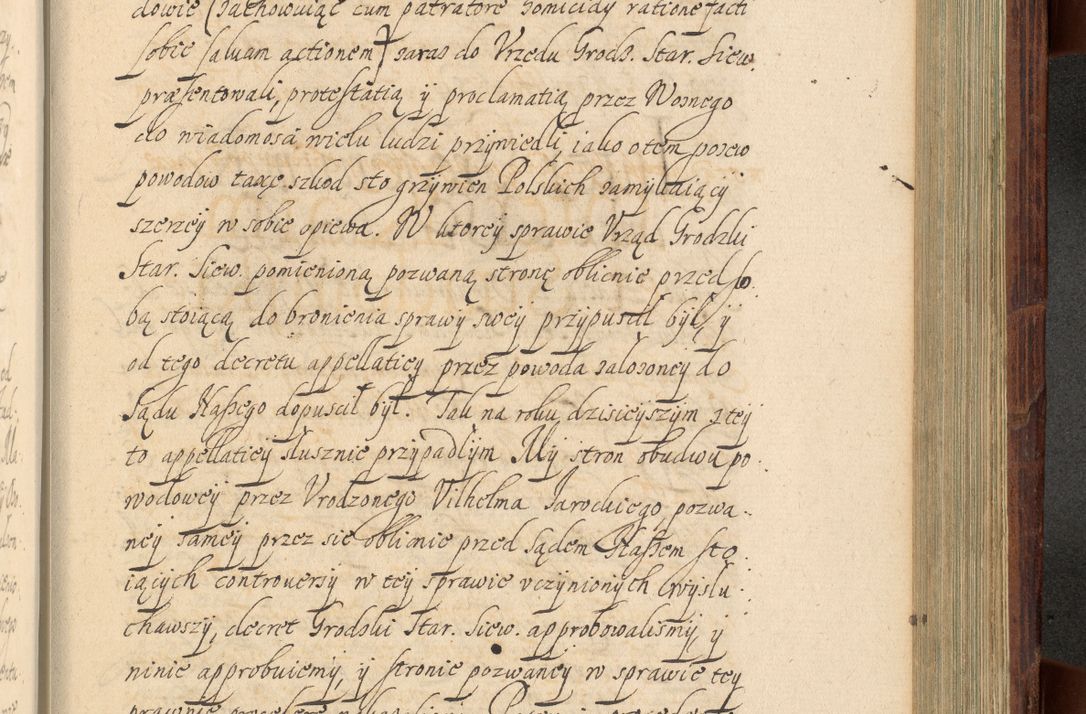 dowie (zachowuiąc cum patratore homicidy ratione facti
sobie saluam actionem) zaraz do Vrzędu Grodz. Star. Siew.
præsentowali, protestatią y proclamatią przez Woznego
do wiadomosci wielu ludzi przywiedli, iako o tem pozew
powodow taxę szkod sto grzywien Polskich zamykaiący
szerzey w sobie opiewa. W ktorey sprawie Vrząd Grodzki
Star. Siew. pomienioną pozwaną stronę oblicznie przed so
bą stoiącą do bronienia sprawy swey przypuscił był, y
od tego decretu appellatiey przez powoda załozoney do
Sądu Naszego dopuscił był. Tak na roku dzisieyszym z tey
to appellatiey słusznie przypadłym My stron obudwu po
wodowey przez Vrodzonego Vilhelma Jarockiego, pozwa
ney samey przez sie oblicznie przed Sądem Naszem sto
iących controuersy w tey sprawie vczynionych wysłu
chawszy, decret Grodzki Star. Siew. approbowalismy, y
ninie approbuiemy, y stronie pozwaney w sprawie tey